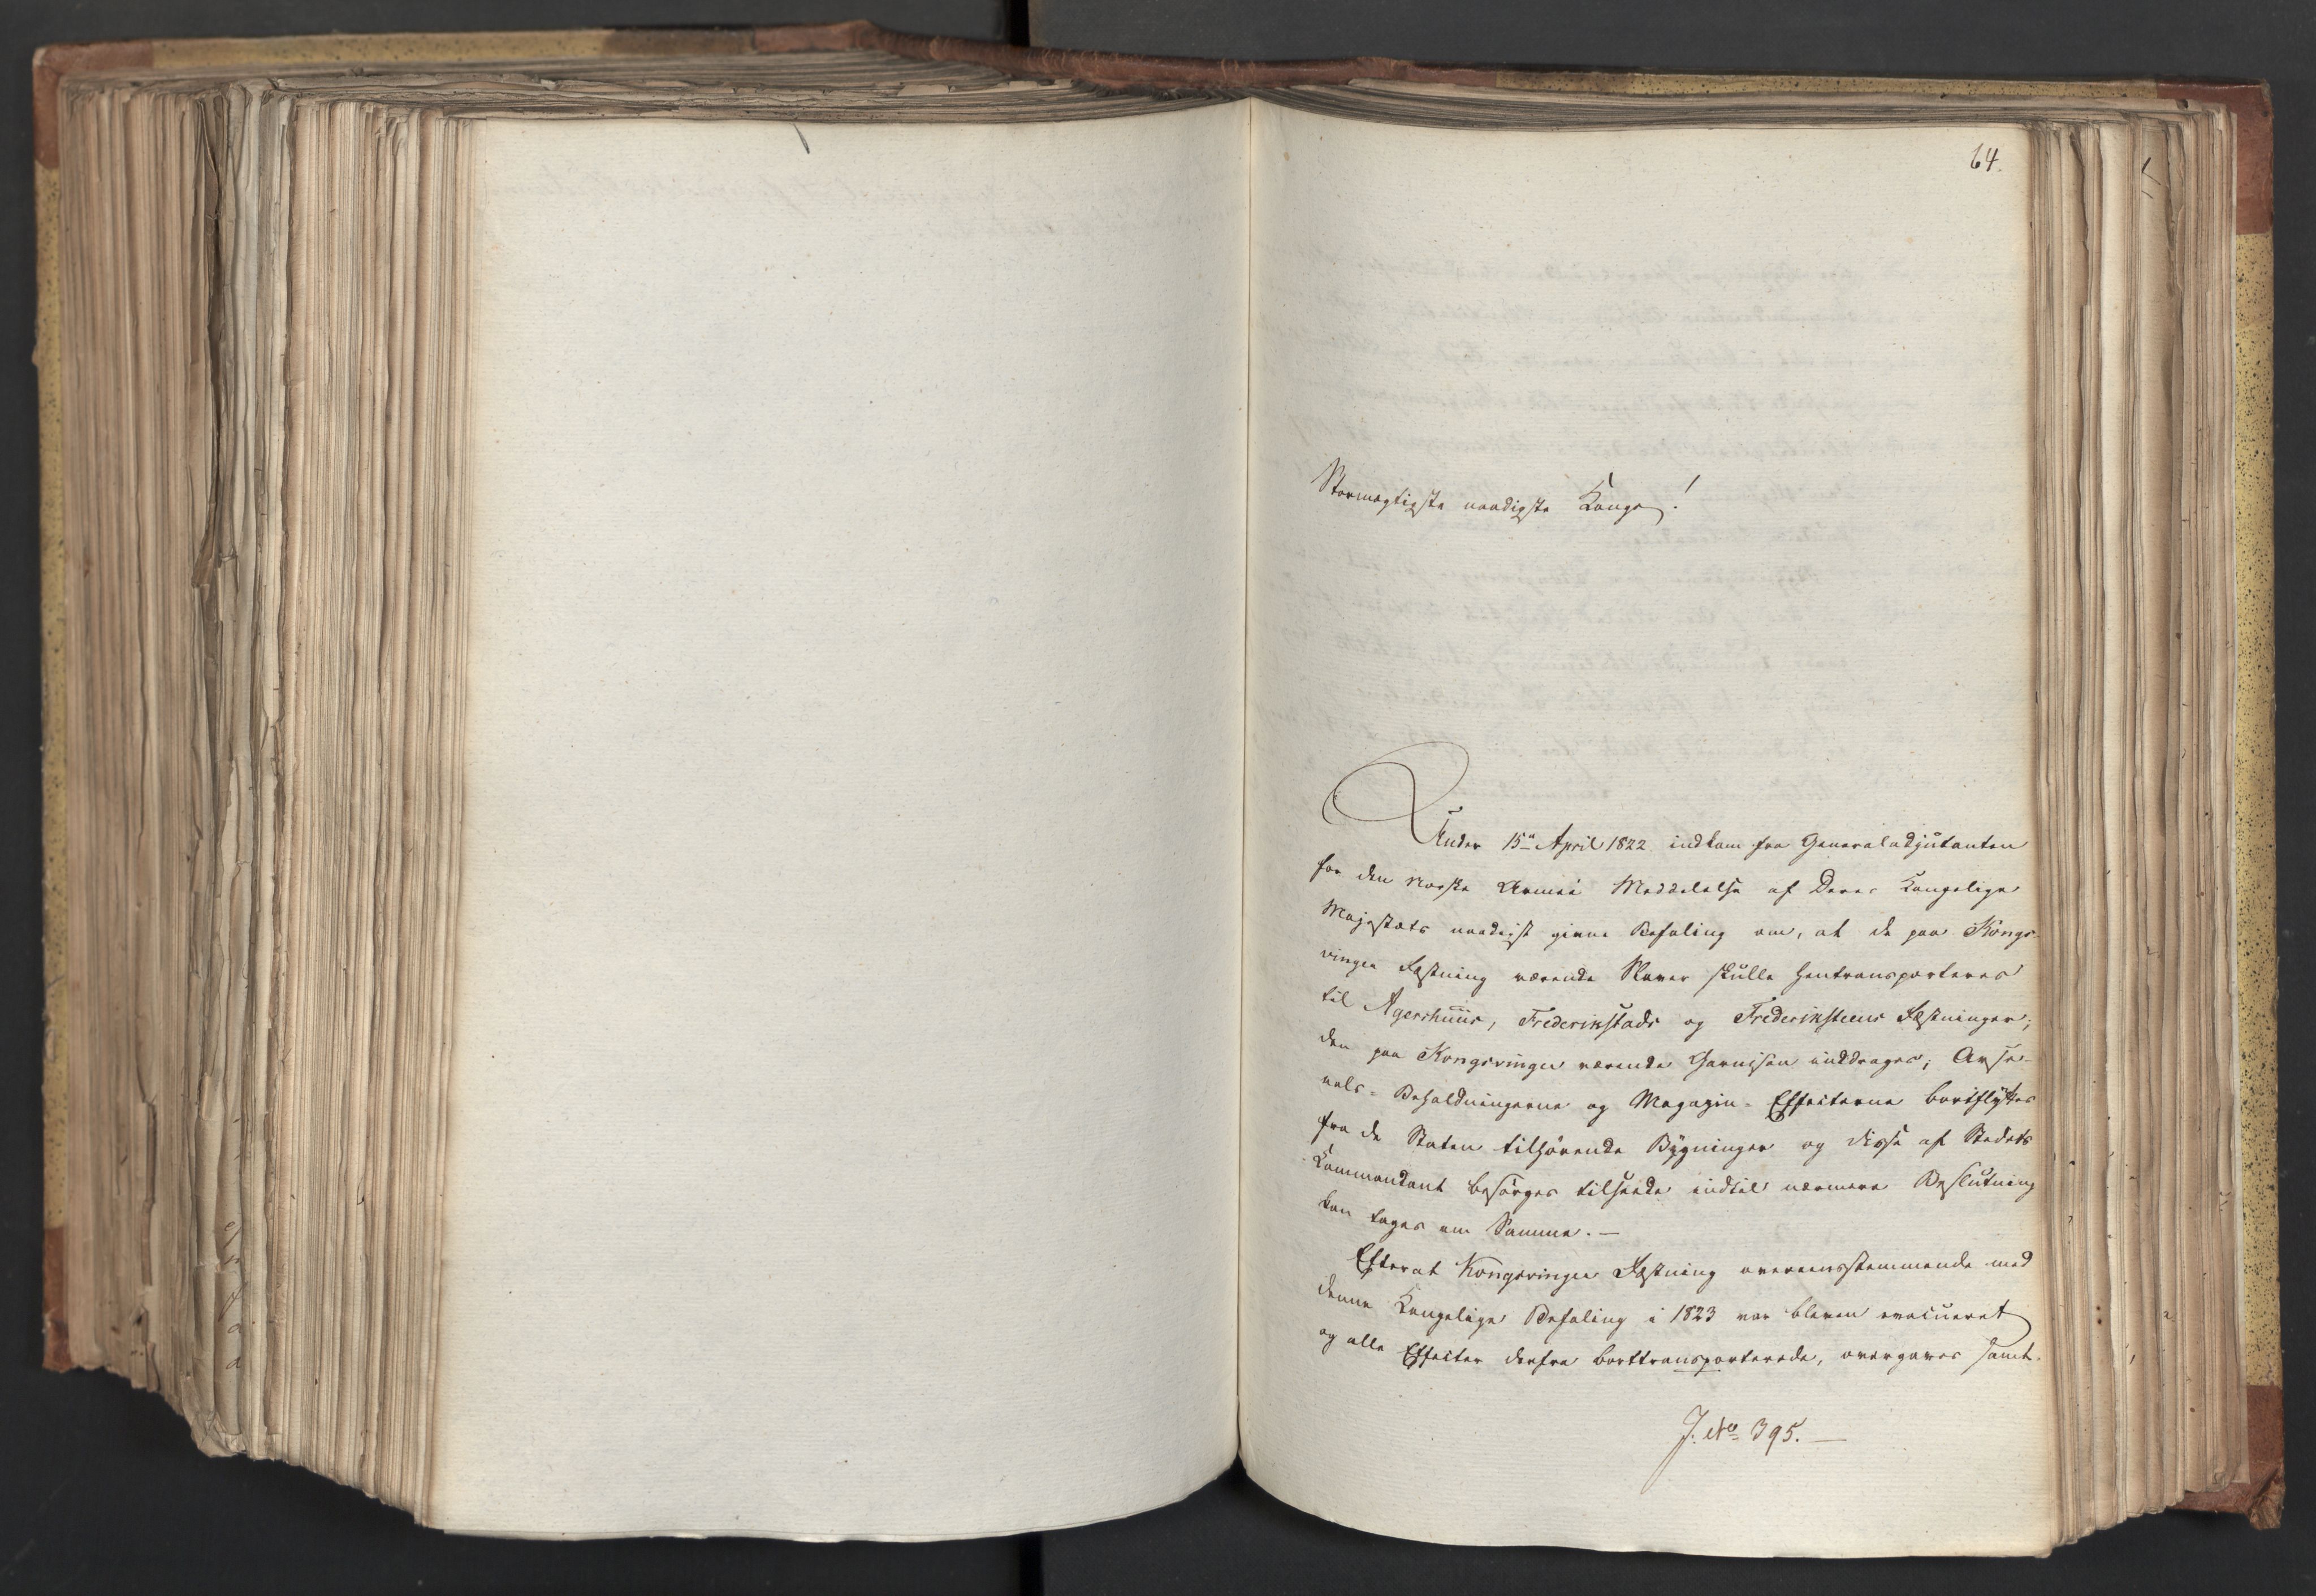 64.
Stormægtigste naadigste Konge!
Under 15de April 1822 indkom fra Generaladjutanten
for den norske Armee Meddelelse af Deres Kongelige
Majestæts naadigst givne Befaling om, at de paa Kongs-
vinger Fæstning værende Slaver skulle hentransporteres
til Agershuus, Frederikstads og Frederiksteens Fæstninger;
den paa Kongsvinger værende Garnison inddrages; Arse-
nals-Beholdningerne og Magazin-Effecterne bortflyttes
fra de Staten tilhørende Bygninger og disse af Stedets
Commandant besørges tilseede indtil nærmere Beslutning
kan tages om Samme. —
Efterat Kongsvinger Fæstning overeensstemmende med
denne Kongelige Befaling i 1823 var bleven evacueret
og alle Effecter derfra borttransporterede, overgaves samt-
J. No 395. —